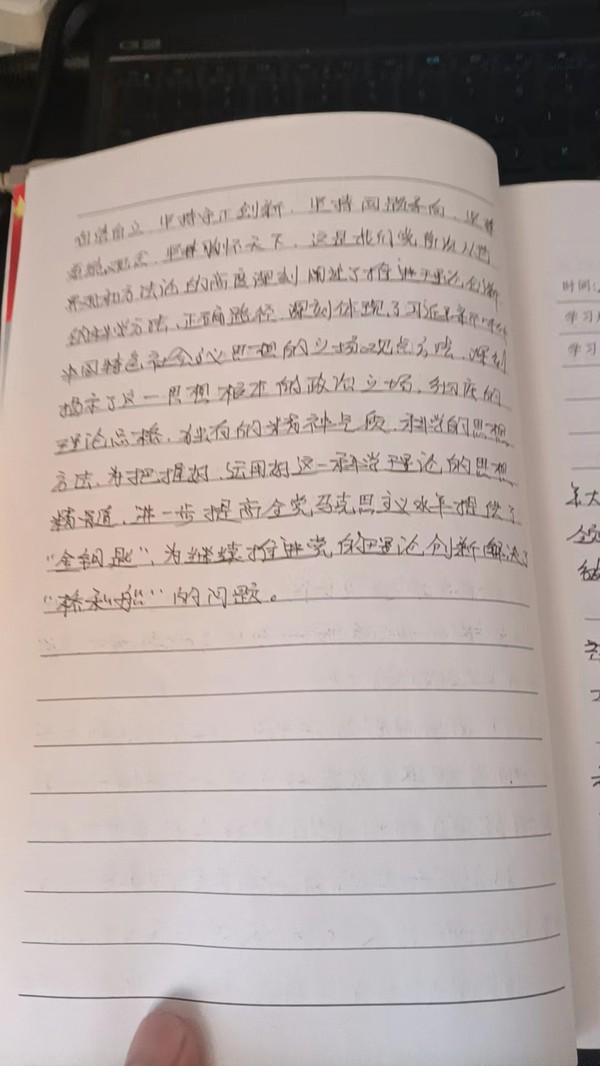 自信自立、坚持守正创新、坚持问题导向、坚持
系统观念、坚持胸怀天下。这是我们党首次从世
界观和方法论的高度深刻阐述了推进理论创新
的科学方法、正确路径，深刻体现了习近平新时代
中国特色社会主义思想的立场观点方法，深刻
揭示了这一思想根本的政治立场、彻底的
理论品格、独有的精神气质、科学的思想
方法，为把握好、运用好这一科学理论的思想
精髓，进一步提高全党马克思主义水平提供了
“金钥匙”，为继续推进党的理论创新解决了
“桥和船”的问题。
时间:
学习
学习